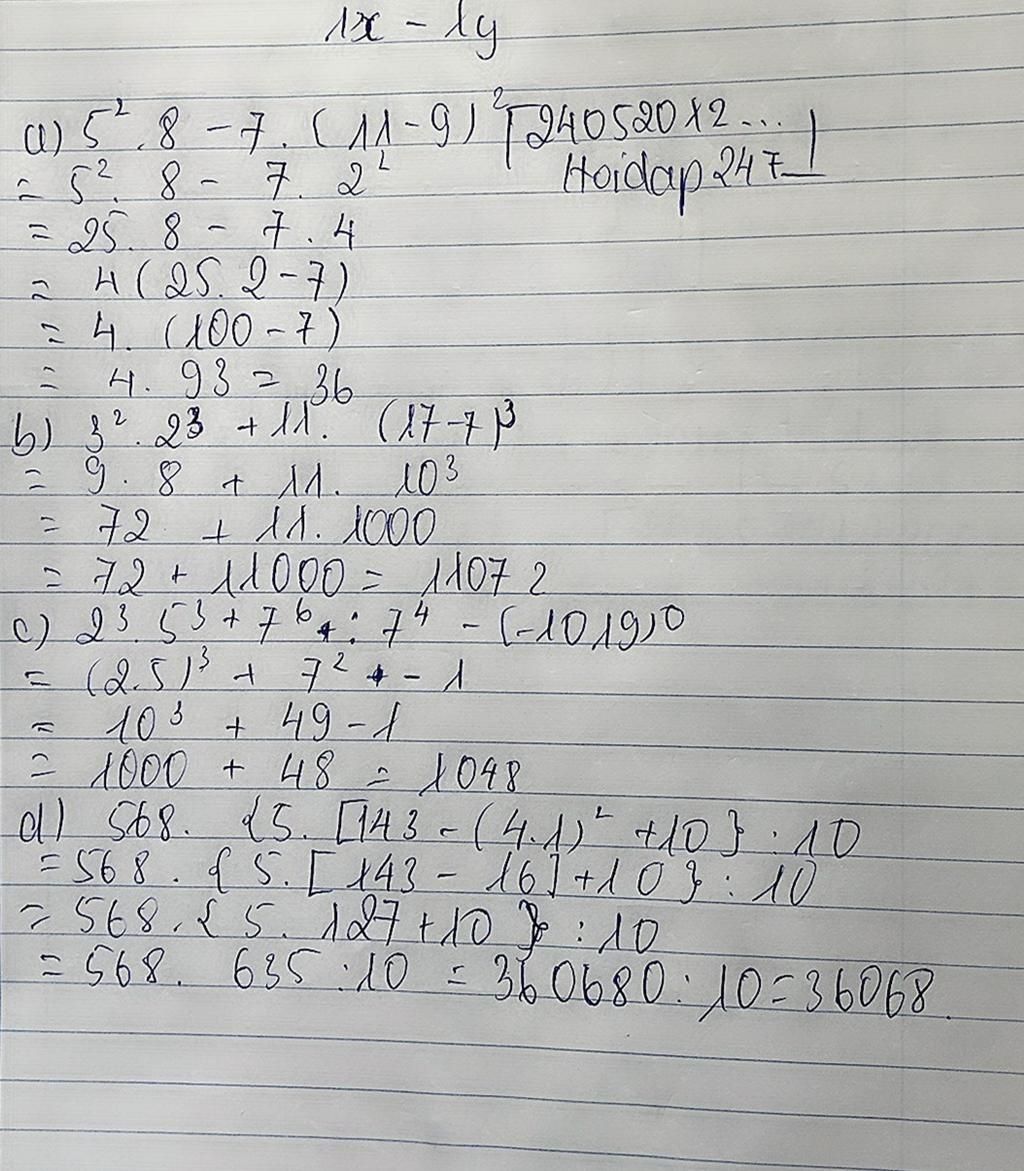 1x - 1y
a) 5². 8 - 7. (11-9)² [240520x2...
Hoidap247]
= 5². 8 - 7. 2²
= 25. 8 - 7. 4
= 4 (25. 2 - 7)
= 4. (100 - 7)
= 4. 93 = 36
b) 3². 2³ + 11. (17-7)³
= 9. 8 + 11. 10³
= 72 + 11. 1000
= 72 + 11000 = 11072
c) 2³. 5³ + 7⁶ : 7⁴ - (-1019)⁰
= (2.5)³ + 7² - 1
= 10³ + 49 - 1
= 1000 + 48 = 1048
d) 568. {5. [143 - (4.1)² + 10} : 10
= 568. {5. [143 - 16] + 10} : 10
= 568. {5. 127 + 10} : 10
= 568. 635 : 10 = 360680 : 10 = 36068.